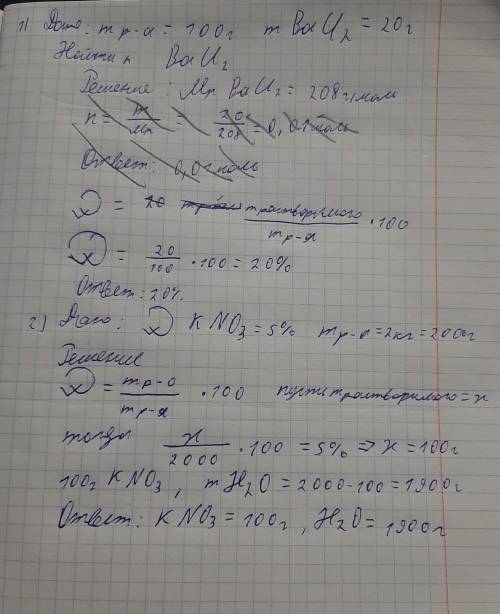 1) Дано: m р-а = 100г m BaCl₂ = 20г
Найти n BaCl₂
Решение: Mr BaCl₂ = 208 г/моль
n = m/Mr = 20/208 = 0,01 моль
Ответ: 0,01 моль
ω = m растворимого/m р-а · 100
ω = 20/100 · 100 = 20%
Ответ: 20%.
2) Дано: ω KNO₃ = 5% m р-а = 2кг = 2000г
Решение
ω = m р-о/m р-а · 100 пусть m растворимого = x
тогда x/2000 · 100 = 5% => x = 100г
100г KNO₃, m H₂O = 2000-100 = 1900г
Ответ: KNO₃ = 100г, H₂O = 1900г